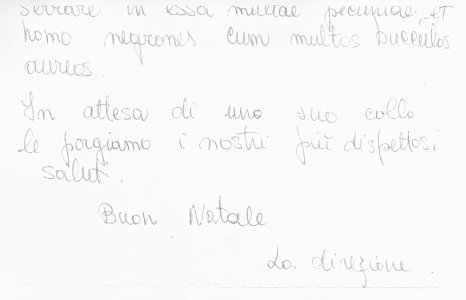 serrare in essa multae pecuniae et
homo negrones cum multos bucculos
aureos.
In attesa di uno suo collo
le porgiamo i nostri più dispettosi
saluti.
Buon Natale
La direzione.